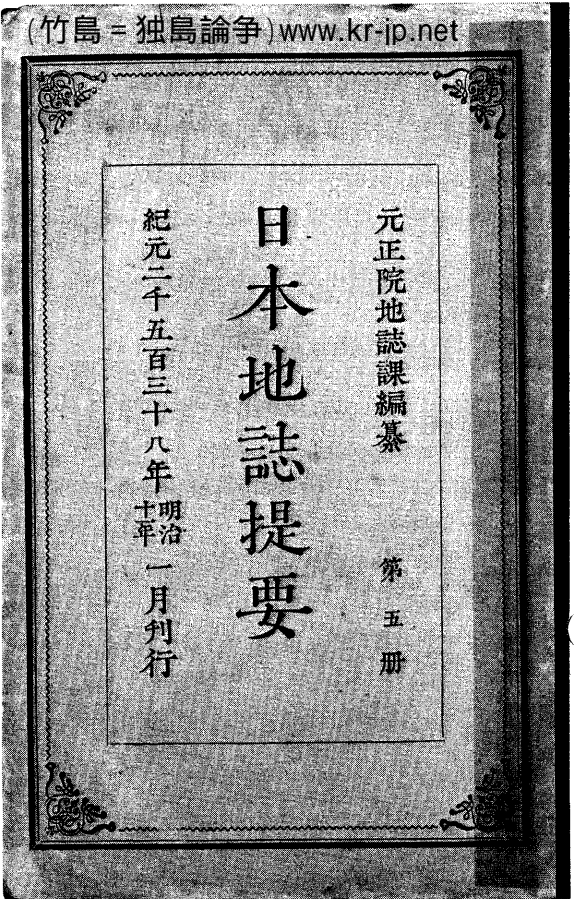 (竹島=独島論争)www.kr-jp.net
元正院地誌課編纂 第五册
日本地誌提要
紀元二千五百三十八年 明治十年 一月刊行